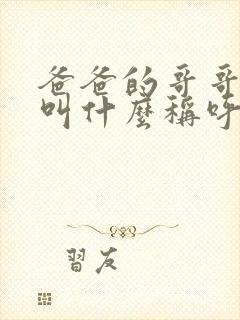 爸爸的哥哥
叫什麼稱呼
習友